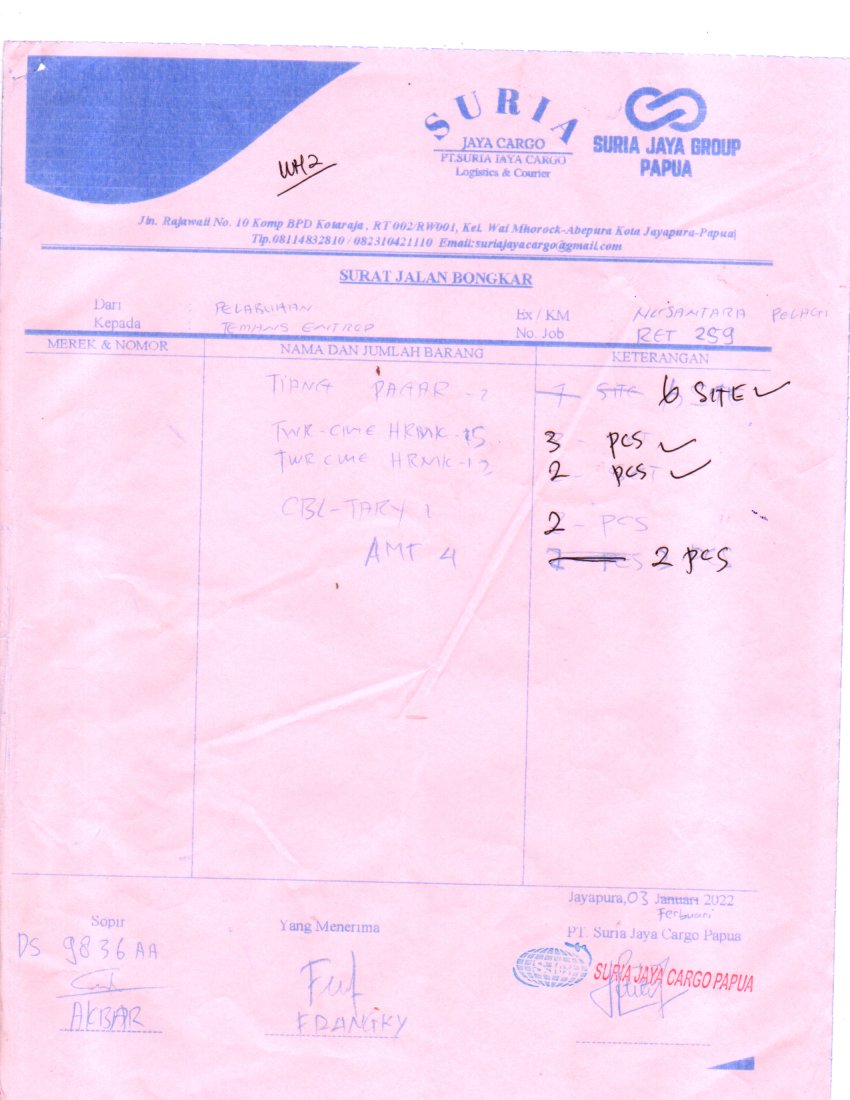 SURIA
JAYA CARGO
PT.SURIA JAYA CARGO
Logistics & Courier
SURIA JAYA GROUP
PAPUA
WH2
Jln. Rajawali No. 10 Komp BPD Kotaraja , RT 002/RW001, Kel. Wai Mhorock-Abepura Kota Jayapura-Papua
Tlp.08114832810 / 082310421110 Email:suriajayacargo@gmail.com
SURAT JALAN BONGKAR
Dari : PELABUHAN Ex / KM NUSANTARA PELAGI
Kepada : TEMANS ENTROP No. Job RET 259
MEREK & NOMOR NAMA DAN JUMLAH BARANG KETERANGAN
TIANG PAGAR - 2 7 SITE 6 SITE ✓
TWR-CME HRMK-15 3 pcs ✓
TWR CME HRMK-12 2 pcs ✓
CBL-TARY 1 2 - PCS
AMT 4 2 pcs
Jayapura, 03 Januari 2022
Ferbuari
Sopir Yang Menerima PT. Suria Jaya Cargo Papua
DS 9836 AA
SURIA JAYA CARGO PAPUA
AKBAR FRANGKY